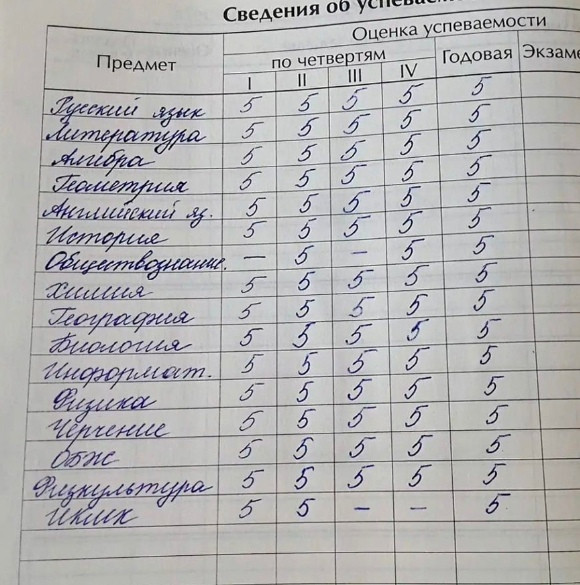 Сведения об успеваем
Предмет Оценка успеваемости
по четвертям Годовая Экзаме
I II III IV
Русский язык 5 5 5 5 5
Литература 5 5 5 5 5
Алгебра 5 5 5 5 5
Геометрия 5 5 5 5 5
Английский яз. 5 5 5 5 5
История 5 5 5 5 5
Обществознание. — 5 — 5 5
Химия 5 5 5 5 5
География 5 5 5 5 5
Биология 5 5 5 5 5
Информат. 5 5 5 5 5
Физика 5 5 5 5 5
Черчение 5 5 5 5 5
ОБЖ 5 5 5 5 5
Физкультура 5 5 5 5 5
ИКМК 5 5 — — 5